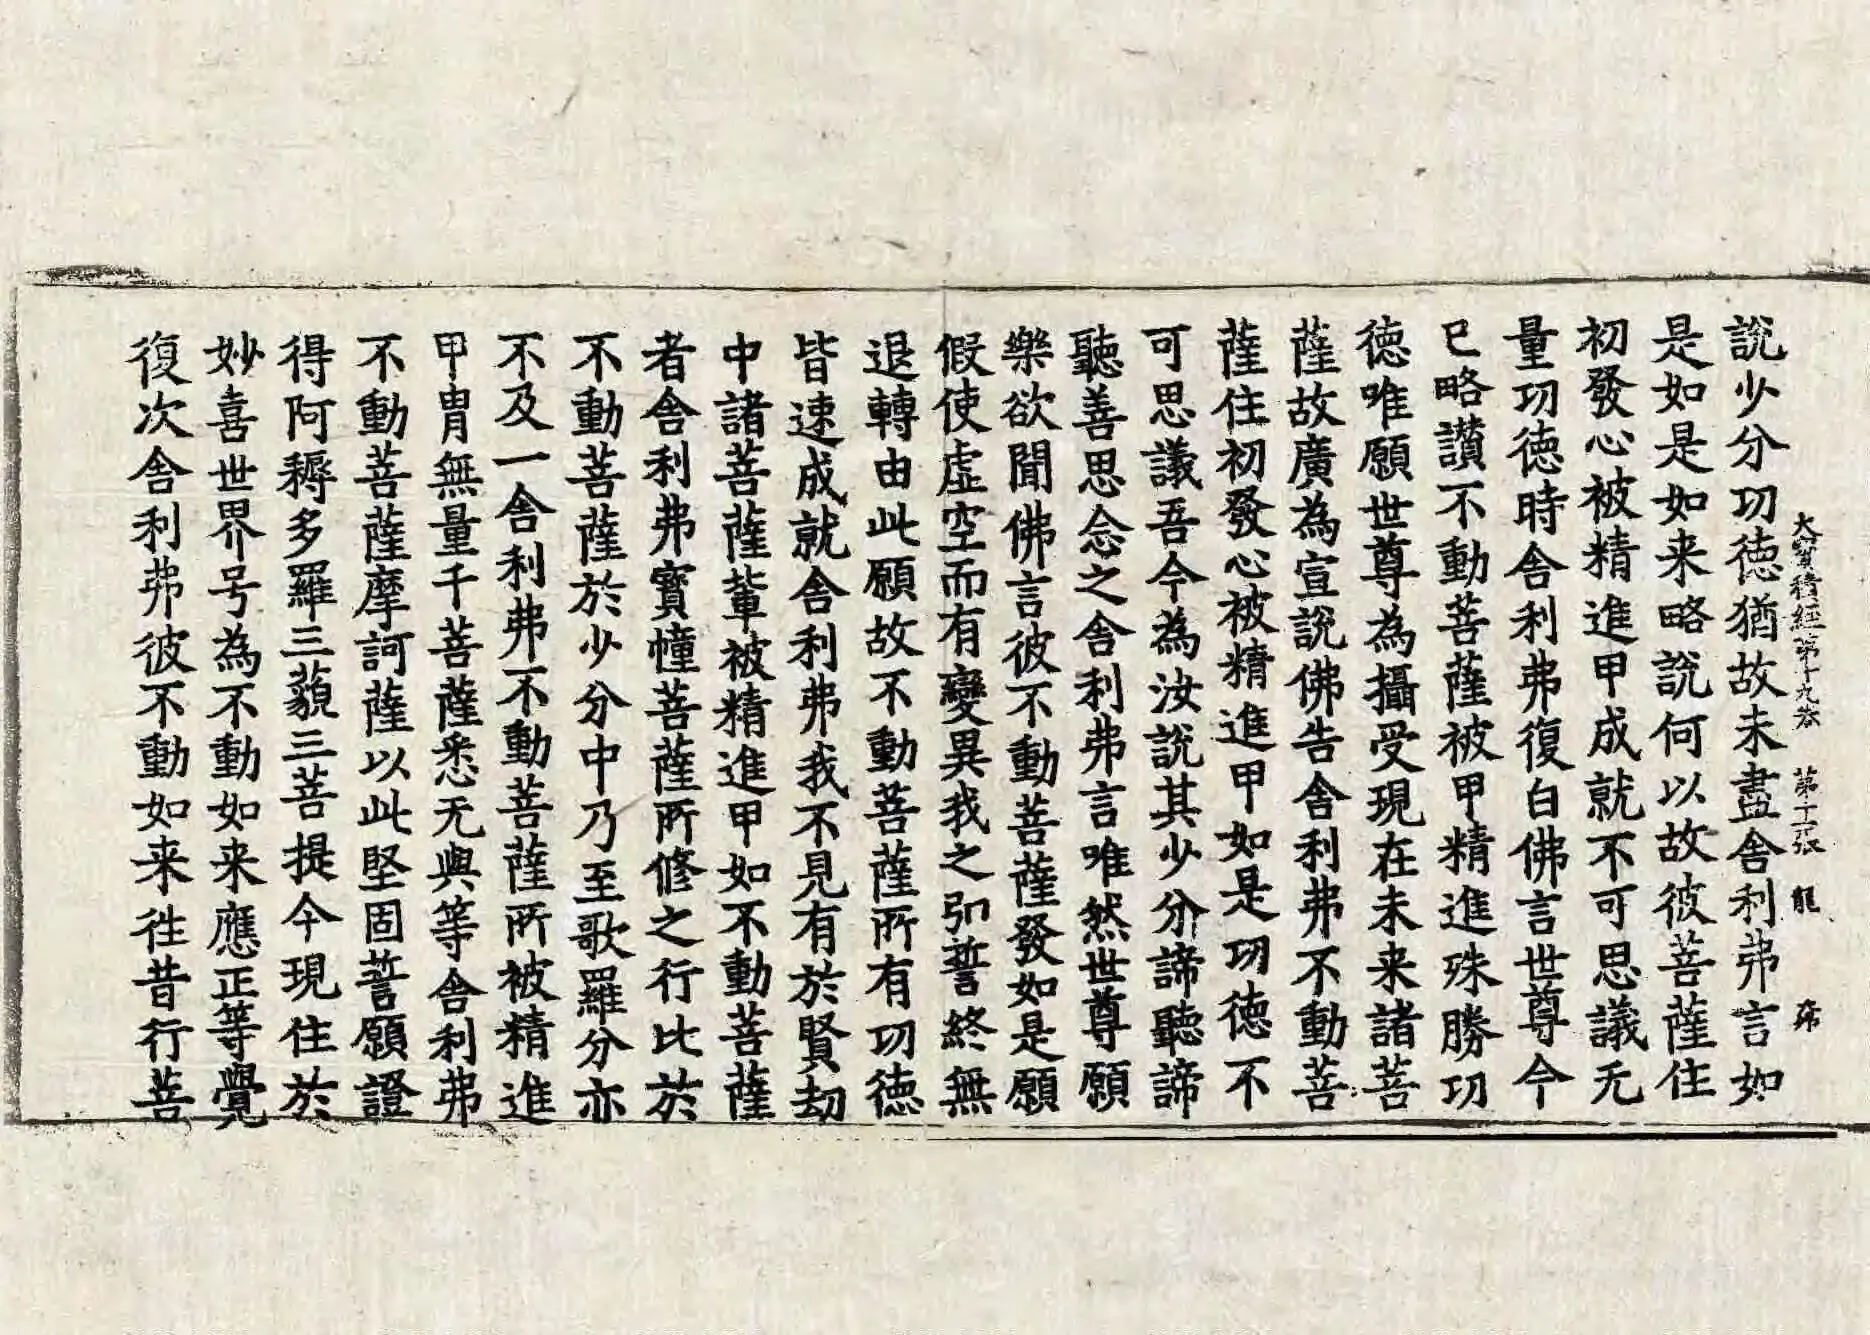 大寶積經第十九卷 第十一張 龍
說少分功德猶故未盡舍利弗言如
是如是如来略說何以故彼菩薩住
初發心被精進甲成就不可思議无
量功德時舍利弗復白佛言世尊今
已略讃不動菩薩被甲精進殊勝功
德唯願世尊為攝受現在未来諸菩
薩故廣為宣說佛告舍利弗不動菩
薩住初發心被精進甲如是功德不
可思議吾今為汝說其少分諦聽諦
聽善思念之舍利弗言唯然世尊願
樂欲聞佛言彼不動菩薩發如是願
假使虛空而有變異我之弘誓終無
退轉由此願故不動菩薩所有功德
皆速成就舍利弗我不見有於賢劫
中諸菩薩輩被精進甲如不動菩薩
者舍利弗寶幢菩薩所修之行比於
不動菩薩於少分中乃至歌羅分亦
不及一舍利弗不動菩薩所被精進
甲冑無量千菩薩悉无與等舍利弗
不動菩薩摩訶薩以此堅固誓願證
得阿耨多羅三藐三菩提今現住於
妙喜世界号為不動如来應正等覺
復次舍利弗彼不動如来往昔行菩